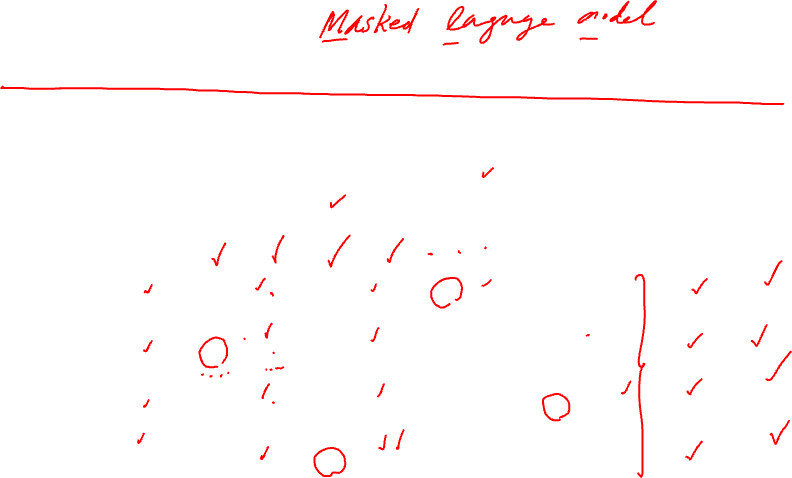 Masked laguage model